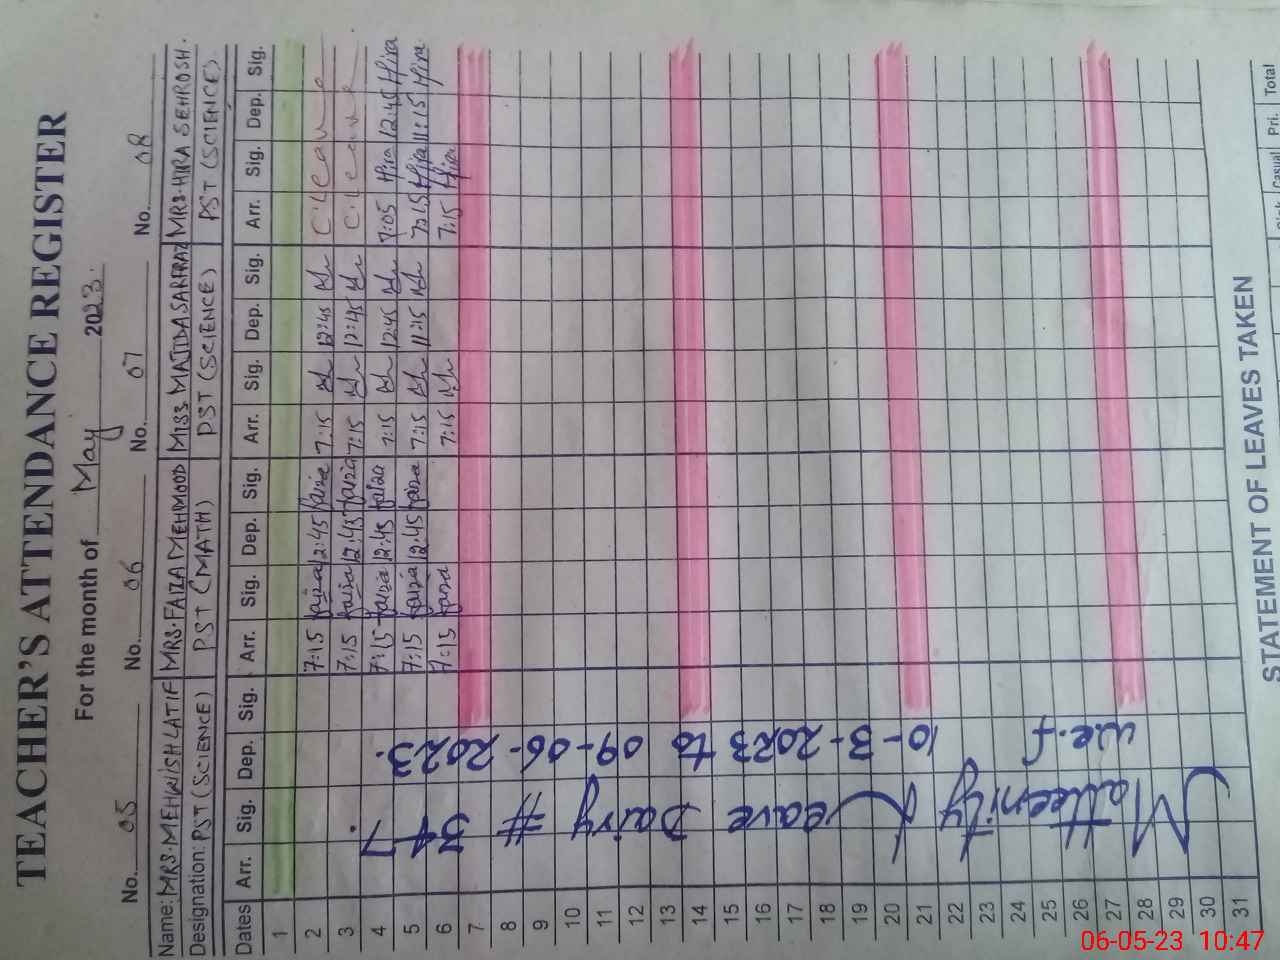 TEACHER'S ATTENDANCE REGISTER
For the month of May 2023.
No. 05 No. 06 No. 07 No. 08
Name: MRS. MEHWISH LATIF MRS. FAIZA MEHMOOD MISS. MAJIDA SARFRAZ MRS. HIRA SEHROSH.
Designation: PST (SCIENCE) PST (MATH) PST (SCIENCE) PST (SCIENCE).
Dates Arr. Sig. Dep. Sig. Arr. Sig. Dep. Sig. Arr. Sig. Dep. Sig. Arr. Sig. Dep. Sig.
1
2 7:15 faiza 12:45 faiza 7:15 12:45 C.Leave
3 7:15 faiza 12:45 faiza 7:15 12:45 C.Leave
4 7:15 faiza 12:45 faiza 7:15 12:45 7:05 Hira 12:45 Hira
5 7:15 faiza 12:45 faiza 7:15 11:15 7:15 Hira 11:15 Hira
6 7:15 faiza 7:15 7:15 Hira
7
8
9
10
11
12
13
14
15
16
17
18
19
20
21
22
23
24
25
26
27
28
29
30
31
Matternity Leave Dairy # 347.
w.e.f 10-3-2023 to 09-06-2023.
STATEMENT OF LEAVES TAKEN
Casual Pri. Total
06-05-23 10:47